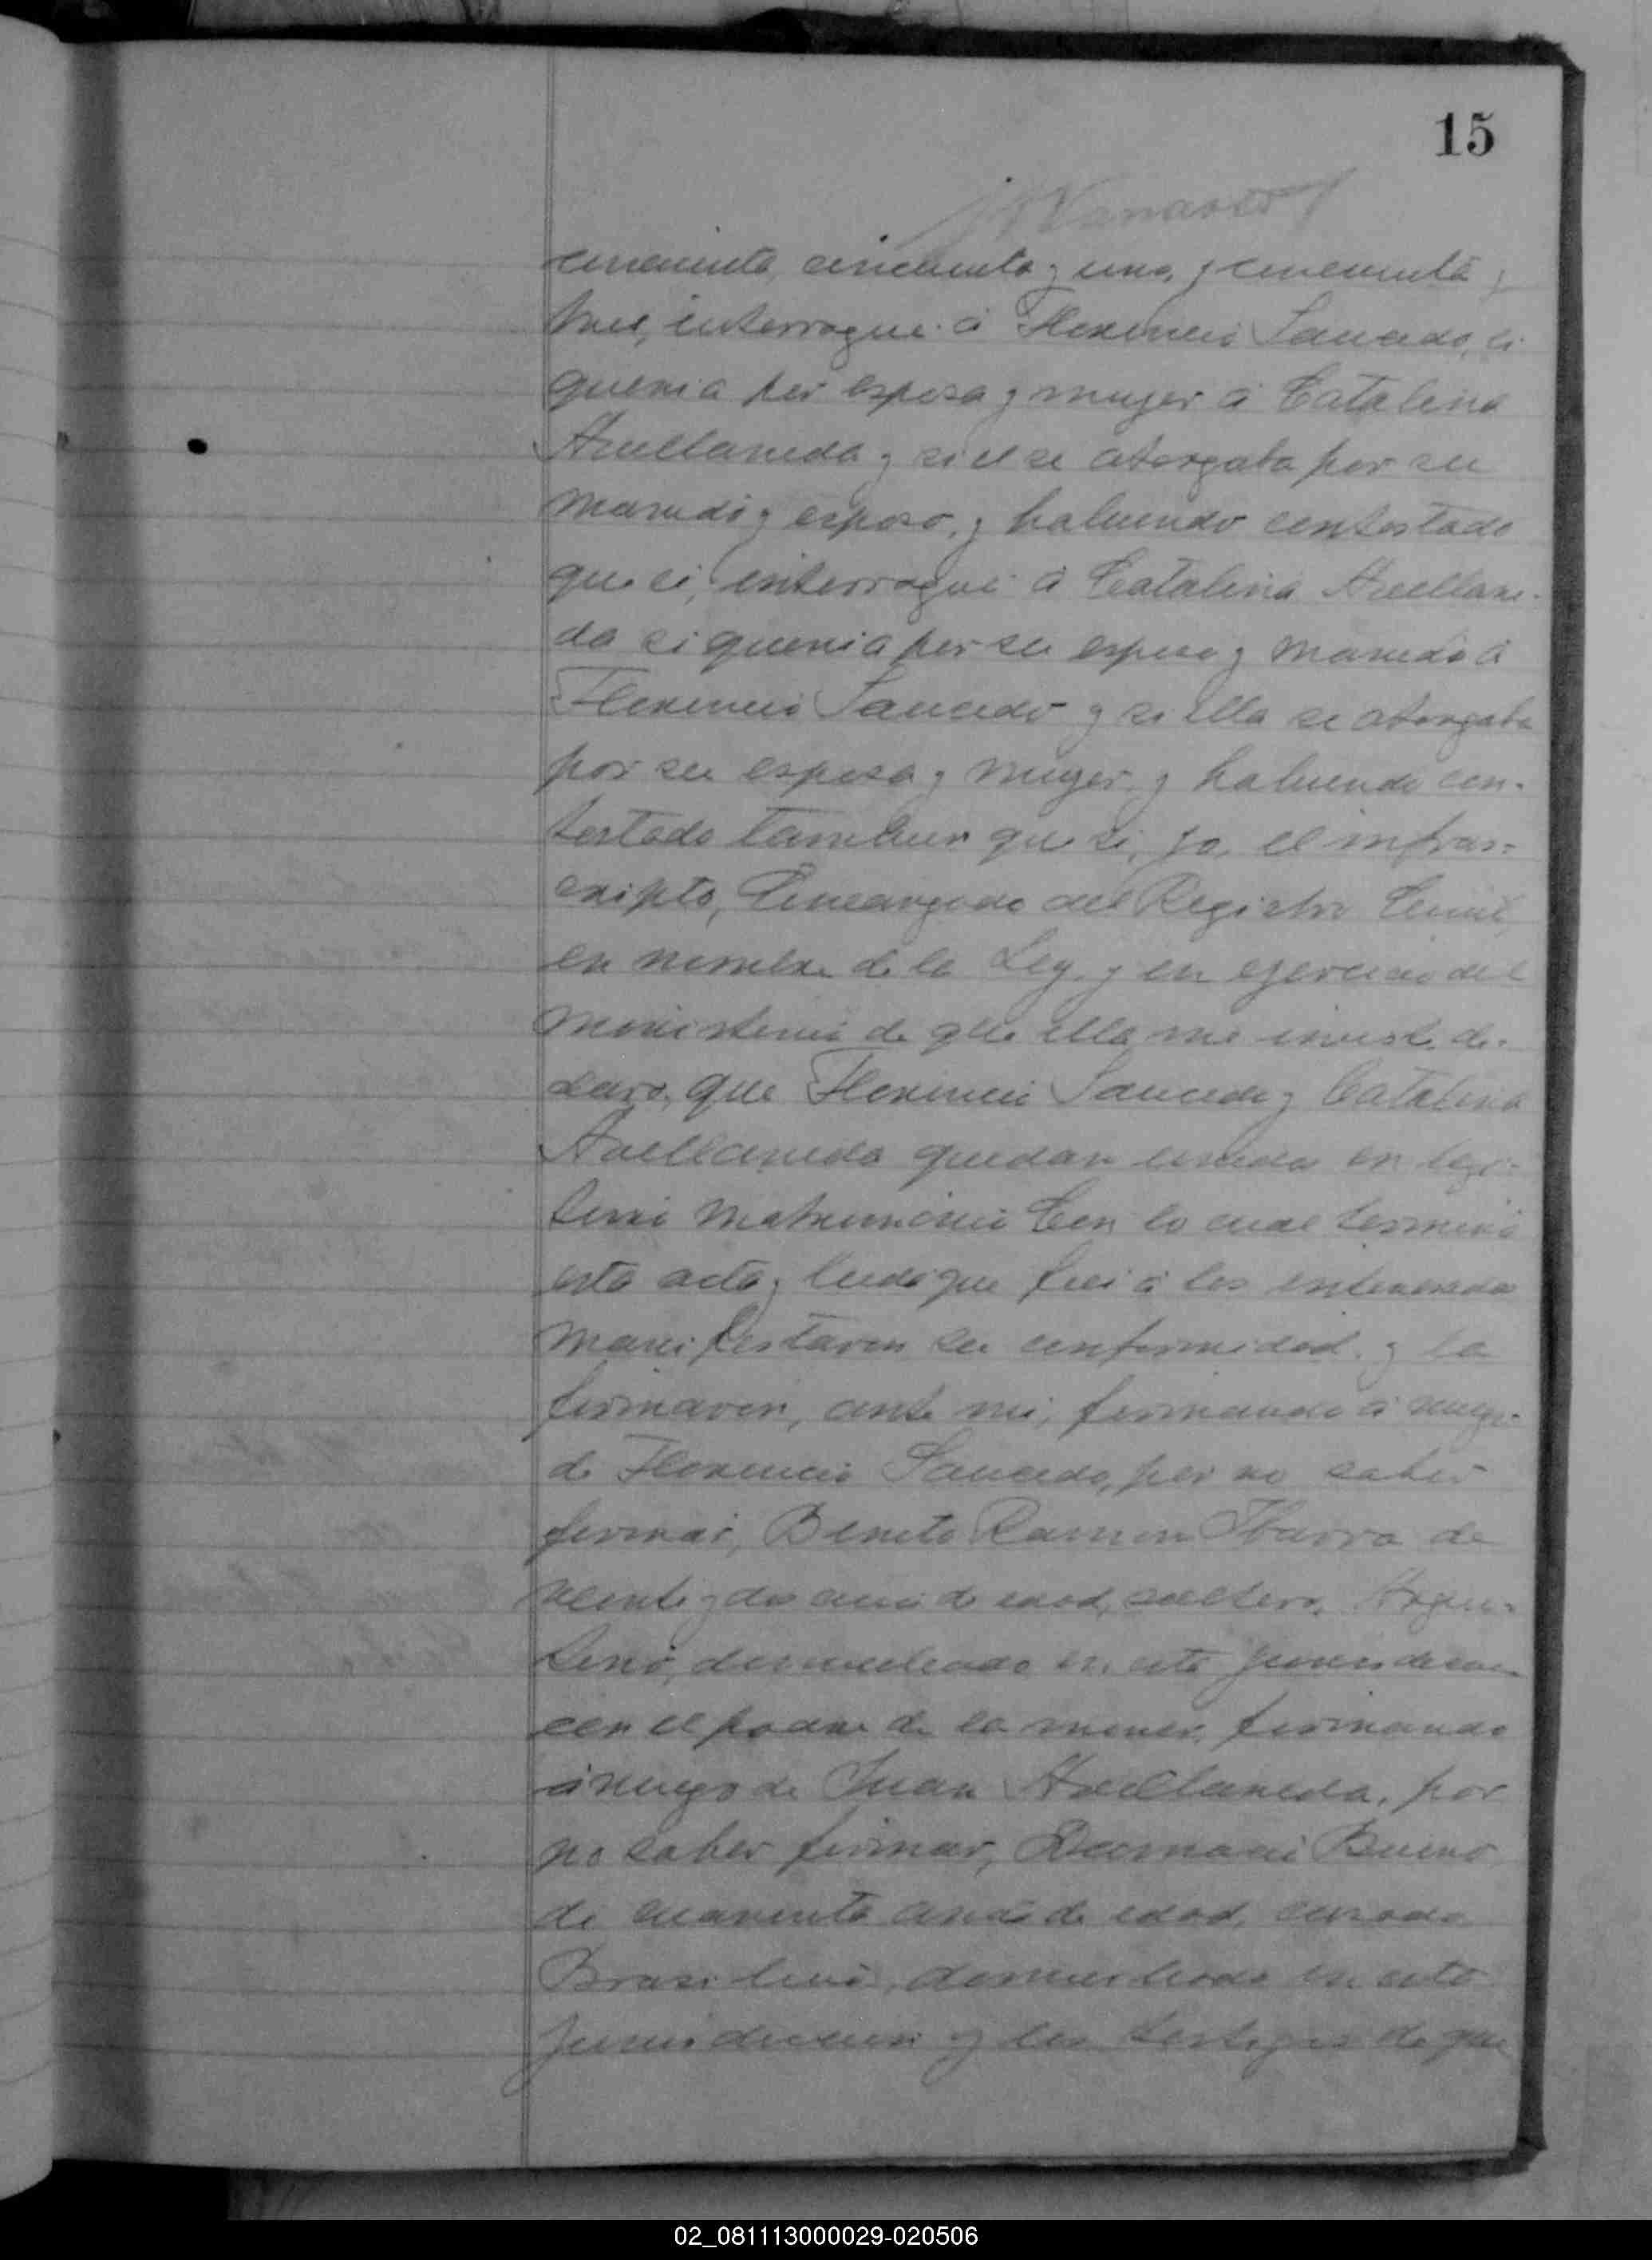 15
cincuenta, cincuenta y uno, y cincuenta y
tres, interrogué á Florencio Saucedo, si
queria por esposa y muger á Catalina
Avellaneda y si el se otorgaba por su
marido y esposo, y habiendo contestado
que si, interrogué á Catalina Avellane-
da si queria por su esposo y marido á
Florencio Saucedo y si ella se otorgaba
por su esposa y muger, y habiendo con-
testado tambien que si, yo, el infras-
cripto, Encargado del Registro Civil,
en nombre de la Ley, y en ejercicio del
ministerio de que ella me inviste, de-
claro, que Florencio Saucedo y Catalina
Avellaneda quedan unidos en legi-
timo matrimonio Con lo cual terminó
esta acta, leida que fué á los interesados
manifestaron su conformidad, y la
firmaron, ante mi, firmando á ruego
de Florencio Saucedo, por no saber
firmar, Benito Ramon Ibarra de
veinte y dos años de edad, soltero, Argen-
tino, domiciliado en esta jurisdiccion
con el padre de la menor, firmando
á ruego de Juan Avellaneda, por
no saber firmar, Bueno
de cuarenta años de edad, casado
Brasilero, domiciliado en esta
jurisdiccion y los testigos de que
02_081113000029-020506